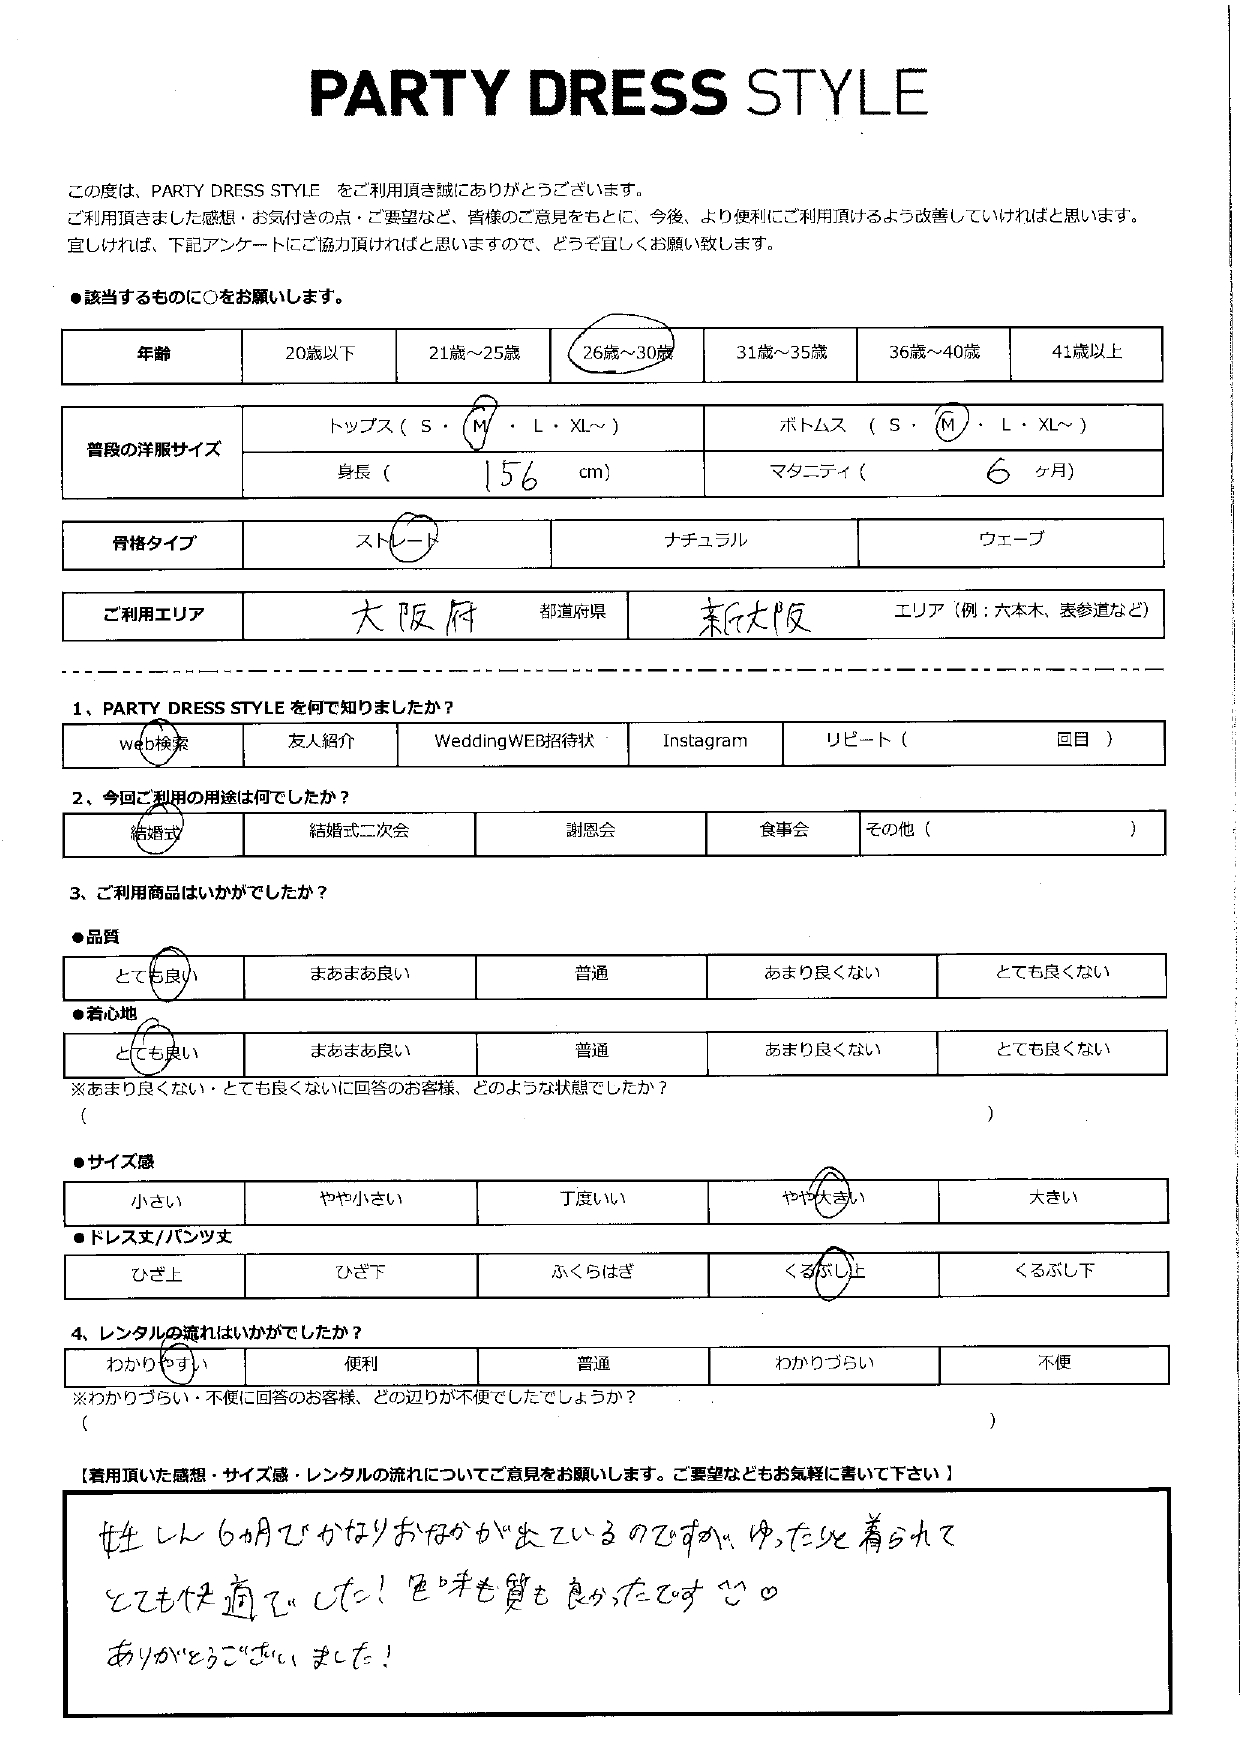 PARTY DRESS STYLE
この度は、PARTY DRESS STYLE をご利用頂き誠にありがとうございます。
ご利用頂きました感想・お気付きの点・ご要望など、皆様のご意見をもとに、今後、より便利にご利用頂けるよう改善していければと思います。
宜しければ、下記アンケートにご協力頂ければと思いますので、どうぞ宜しくお願い致します。
●該当するものに○をお願いします。
年齢 20歳以下 21歳～25歳 26歳～30歳 31歳～35歳 36歳～40歳 41歳以上
普段の洋服サイズ トップス ( S ・ M ・ L ・ XL～ ) ボトムス ( S ・ M ・ L ・ XL～ )
身長 ( 156 cm) マタニティ ( 6 ヶ月)
骨格タイプ ストレート ナチュラル ウェーブ
ご利用エリア 大阪府 都道府県 新大阪 エリア（例：六本木、表参道など）
1、PARTY DRESS STYLE を何で知りましたか？
web検索 友人紹介 WeddingWEB招待状 Instagram リピート ( 回目 )
2、今回ご利用の用途は何でしたか？
結婚式 結婚式二次会 謝恩会 食事会 その他 ( )
3、ご利用商品はいかがでしたか？
●品質
とても良い まあまあ良い 普通 あまり良くない とても良くない
●着心地
とても良い まあまあ良い 普通 あまり良くない とても良くない
※あまり良くない・とても良くないに回答のお客様、どのような状態でしたか？
( )
●サイズ感
小さい やや小さい 丁度いい やや大きい 大きい
●ドレス丈/パンツ丈
ひざ上 ひざ下 ふくらはぎ くるぶし上 くるぶし下
4、レンタルの流れはいかがでしたか？
わかりやすい 便利 普通 わかりづらい 不便
※わかりづらい・不便に回答のお客様、どの辺りが不便でしたでしょうか？
( )
【着用頂いた感想・サイズ感・レンタルの流れについてご意見をお願いします。ご要望などもお気軽に書いて下さい】
妊しん6ヵ月でかなりおなかが出ているのですが、ゆったりと着られて
とても快適でした！色味も質も良かったです^^♡
ありがとうございました！